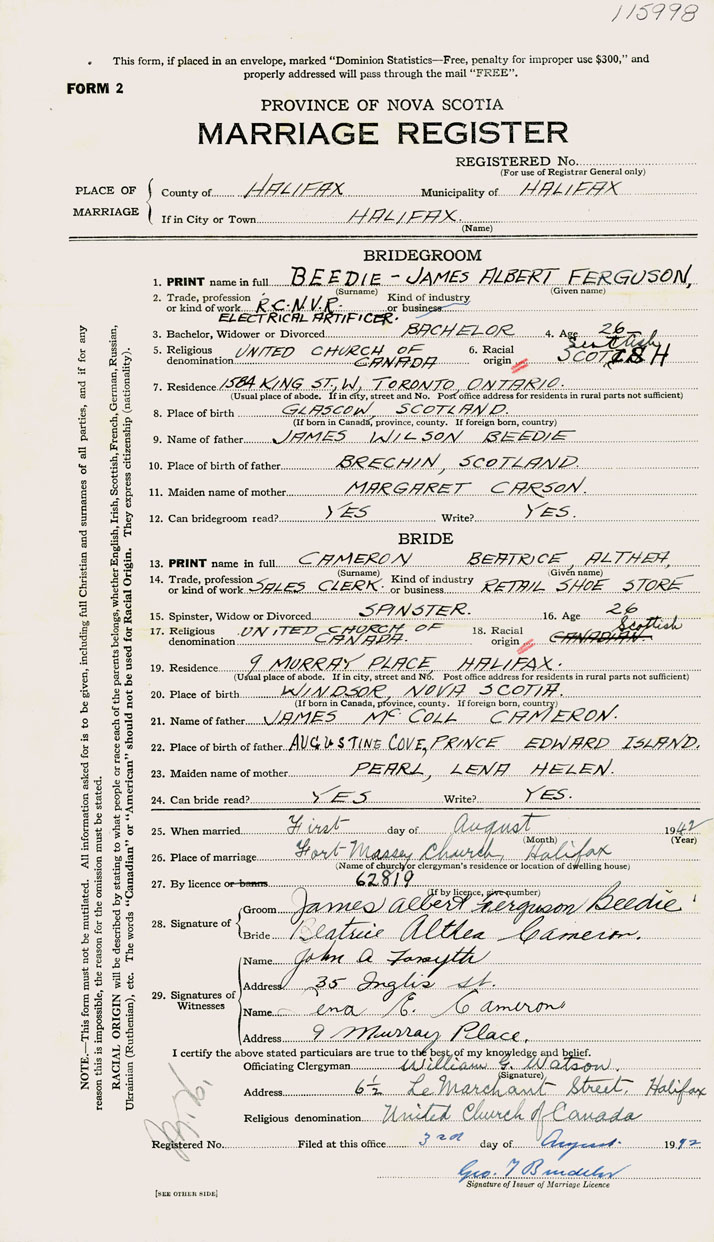 115998
This form, if placed in an envelope, marked "Dominion Statistics—Free, penalty for improper use $300," and
properly addressed will pass through the mail "FREE".
FORM 2
PROVINCE OF NOVA SCOTIA
MARRIAGE REGISTER
REGISTERED No.
(For use of Registrar General only)
PLACE OF MARRIAGE
County of HALIFAX Municipality of HALIFAX
If in City or Town HALIFAX.
(Name)
BRIDEGROOM
1. PRINT name in full BEEDIE - JAMES ALBERT FERGUSON,
(Surname) (Given name)
2. Trade, profession or kind of work R.C.N.V.R. Kind of industry or business
ELECTRICAL ARTIFICER.
3. Bachelor, Widower or Divorced BACHELOR 4. Age 26
5. Religious denomination UNITED CHURCH OF CANADA 6. Racial origin SCOTISH Scottish
7. Residence 1584 KING ST, W, TORONTO, ONTARIO.
(Usual place of abode. If in city, street and No. Post office address for residents in rural parts not sufficient)
8. Place of birth GLASCOW, SCOTLAND.
(If born in Canada, province, county. If foreign born, country)
9. Name of father JAMES WILSON BEEDIE
10. Place of birth of father BRECHIN, SCOTLAND.
11. Maiden name of mother MARGARET CARSON.
12. Can bridegroom read? YES Write? YES.
BRIDE
13. PRINT name in full CAMERON BEATRICE, ALTHEA,
(Surname) (Given name)
14. Trade, profession or kind of work SALES CLERK. Kind of industry or business RETAIL SHOE STORE
15. Spinster, Widow or Divorced SPINSTER. 16. Age 26
17. Religious denomination UNITED CHURCH OF CANADA. 18. Racial origin CANADIAN. Scottish
19. Residence 9 MURRAY PLACE, HALIFAX.
(Usual place of abode. If in city, street and No. Post office address for residents in rural parts not sufficient)
20. Place of birth WINDSOR, NOVA SCOTIA.
(If born in Canada, province, county. If foreign born, country)
21. Name of father JAMES McCOLL CAMERON.
22. Place of birth of father AUGUSTINE COVE, PRINCE EDWARD ISLAND.
23. Maiden name of mother PEARL, LENA HELEN.
24. Can bride read? YES Write? YES.
25. When married First day of August 1942
(Month) (Year)
26. Place of marriage Fort Massey Church, Halifax
(Name of church or clergyman's residence or location of dwelling house)
27. By licence or banns 62819
(If by licence, give number)
28. Signature of
Groom James Albert Ferguson Beedie
Bride Beatrice Althea Cameron.
29. Signatures of Witnesses
Name John A Forsyth
Address 35 Inglis St.
Name ena E. Cameron
Address 9 Murray Place.
I certify the above stated particulars are true to the best of my knowledge and belief.
Officiating Clergyman William G. Watson.
(Signature)
Address 6½ Le Marchant Street, Halifax
Religious denomination United Church of Canada
Registered No. Filed at this office 3rd day of August 1942
Signature of Issuer of Marriage Licence
[SEE OTHER SIDE]
NOTE.—This form must not be mutilated. All information asked for is to be given, including full Christian and surnames of all parties, and if for any
reason this is impossible, the reason for the omission must be stated.
RACIAL ORIGIN will be described by stating to what people or race each of the parents belongs, whether English, Irish, Scottish, French, German, Russian,
Ukrainian (Ruthenian), etc. The words "Canadian" or "American" should not be used for Racial Origin. They express citizenship (nationality).